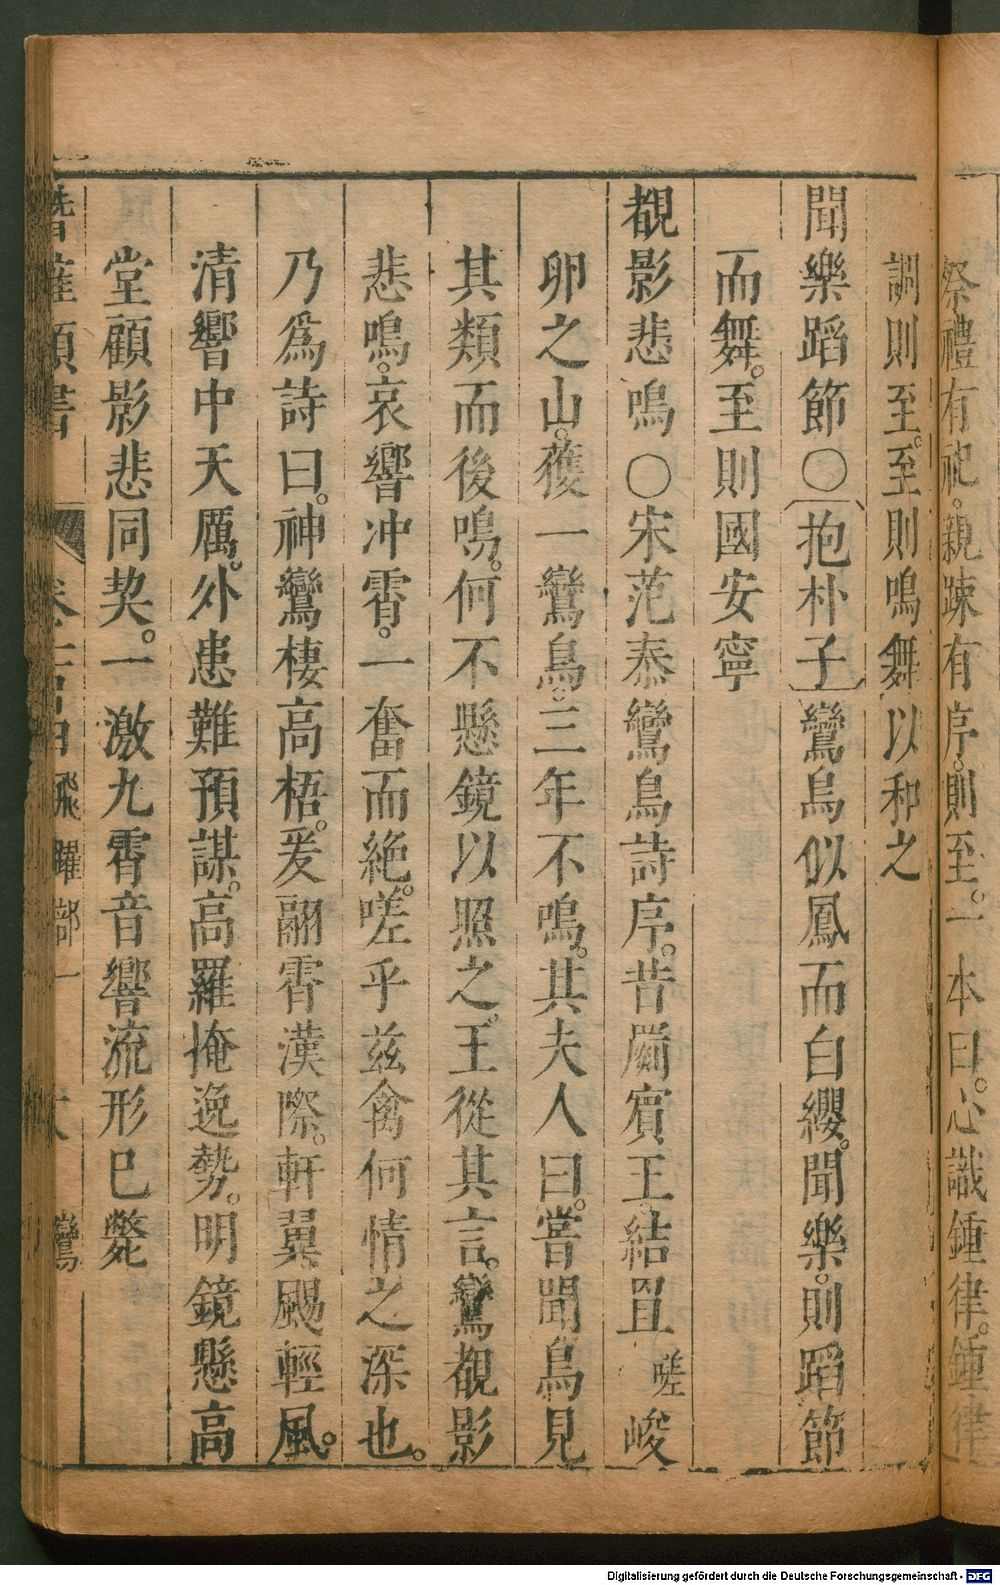 祭禮有祀。親踈有序。則至。一本曰。心識鍾律。鍾律
調則至。至則鳴舞以和之
聞樂蹈節〇〔抱朴子〕鸞鳥似鳳而白纓。聞樂。則蹈節
而舞。至則國安寧
覩影悲鳴〇宋范泰鸞鳥詩序。昔罽賓王。結罝 嗟 峻
卵之山。獲一鸞鳥。三年不鳴。其夫人曰。嘗聞鳥見
其類而後鳴。何不懸鏡以照之。王從其言。鸞覩影
悲鳴。哀響冲霄。一奮而絶。嗟乎兹禽何情之深也。
乃爲詩曰。神鸞棲高梧。爰翮霄漢際。軒翼颺輕風。
清響中天厲。外患難預謀。高羅掩逸勢。明鏡懸高
堂顧影悲同契。一激九霄音響流形巳斃
潛確類書 卷一百 飛躍部一 鸞
Digitalisierung gefördert durch die Deutsche Forschungsgemeinschaft - DFG